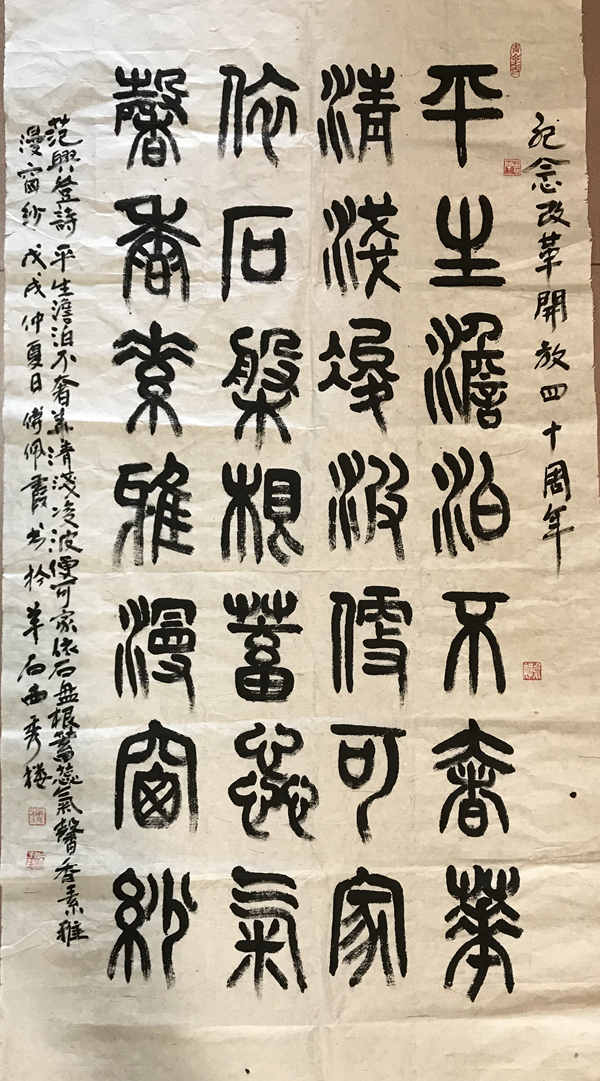 紀念改革開放四十周年
平生澹泊不奢華
清淺凌波便可家
依石槃根蓄蕊氣
馨香素雅漫窗紗
范興登詩 平生澹泊不奢華清淺凌波便可家依石盤根蓄蕊氣馨香素雅
漫窗紗 戊戌仲夏日傅佩霞書於羊石西秀樓